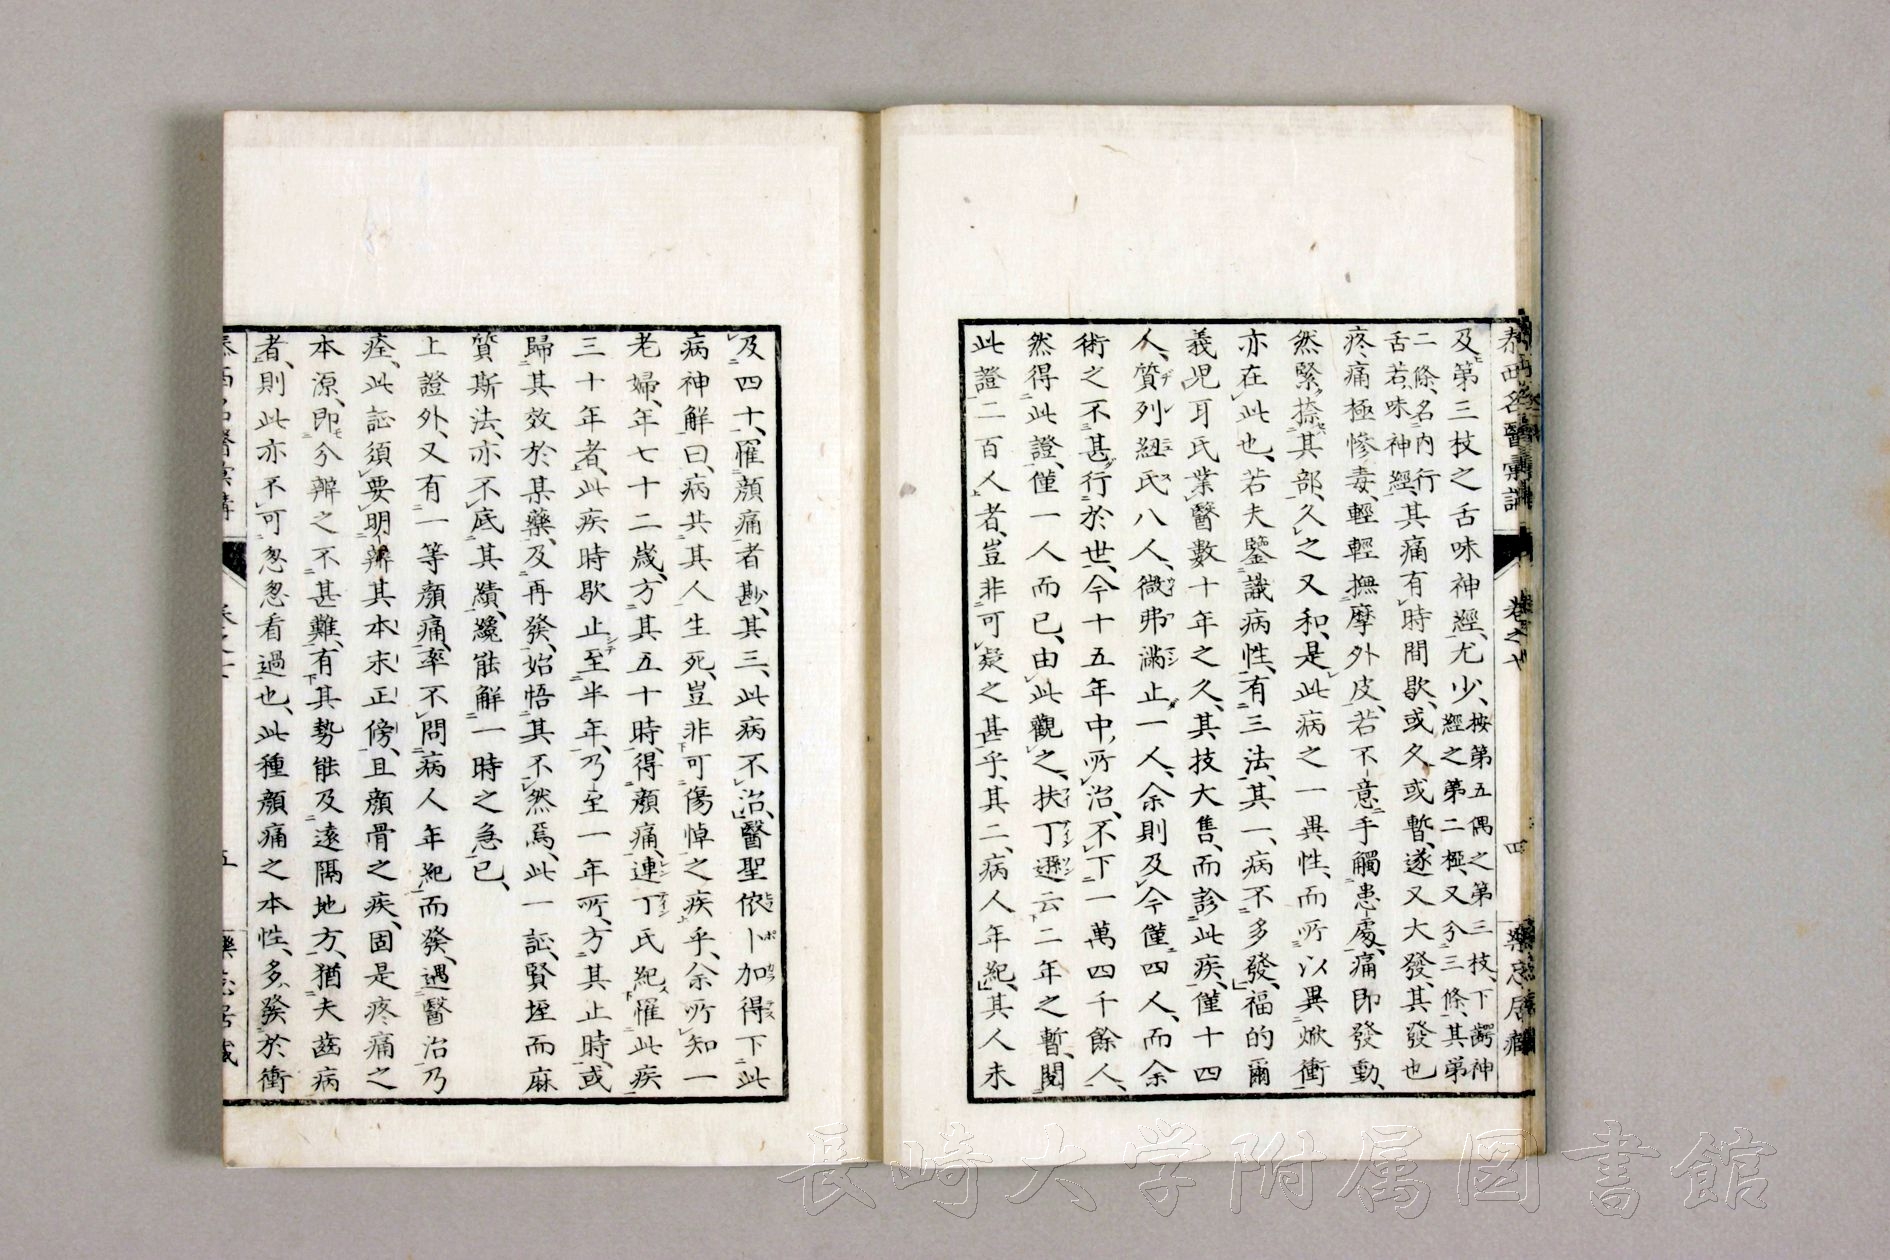 泰西名醫彙講 卷之十 四 樂忘居藏
及第三枝之舌味神經、尤少、按第五偶之第三枝、下齶神
經之第二極、又分三條、其弟
二條、名内行
舌若味神經、其痛有時間歇、或久或暫、遂又大發、其發也
疼痛極慘毒、輕輕撫摩外皮、若不意手觸患處、痛即發動、
然緊捺其部、久之又和、是此病之一異性、而所以異焮衝
亦在此也、若夫鑒識病性、有三法、其一、病不多發、福的爾
義児耳氏業醫數十年之久、其技大售、而診此疾、僅十四
人、質列紐氏八人、微弗満止一人、余則及今僅四人、而余
術之不甚行於世、今十五年中、所治、不下一萬四千餘人、
然得此證、僅一人而已、由此觀之、扶丁遜云二年之暫、閲
此證二百人者、豈非可疑之甚乎、其二、病人年紀、其人未
及四十、罹顔痛者尠、其三、此病不治、醫聖依卜加得下此
病神解曰、病共其人生死、豈非可傷悼之疾乎、余所知一
老婦、年七十二歳、方其五十時、得顔痛、連丁氏紀罹此疾
三十年者、此疾時歇止至半年、乃至一年所、方其止時、或
歸其效於某藥、及再發、始悟其不然焉、此一證、賢垤而麻
質斯法、亦不底其績、纔能解一時之急已、
上證外、又有一等顔痛、率不問病人年紀而發、遇醫治乃
痊、此証須要明辨其本末正傍、且顔骨之疾、固是疼痛之
本源、即分辨之不甚難、有其勢能及遠隔地方、猶夫齒病
者、則此亦不可怱怱看過也、此種顔痛之本性、多發於衝
泰西名醫彙講 卷之十 五 樂忘居藏
長崎大学附属図書館